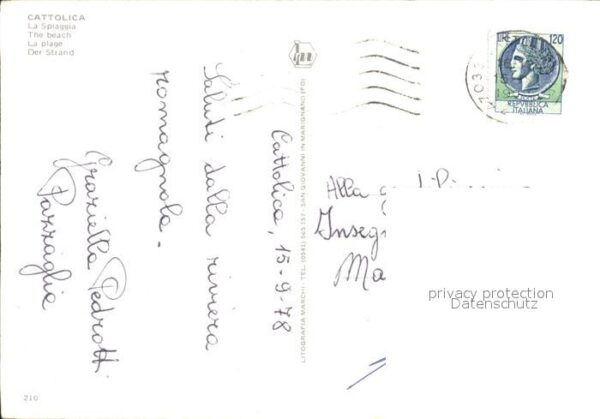 CATTOLICA
La Spiaggia
The beach
La plage
Der Strand
Cattolica, 15-9-78
Saluti dalla riviera
romagnola.
Graziella Pedrotti
Pazzaglia
LITOGRAFIA MARCHI - TEL. (0541) 965 157 - SAN GIOVANNI IN MARIGNANO (FO)
LIRE 120
REPVBBLICA
ITALIANA
Alla
Inseg
Ma
privacy protection
Datenschutz
210